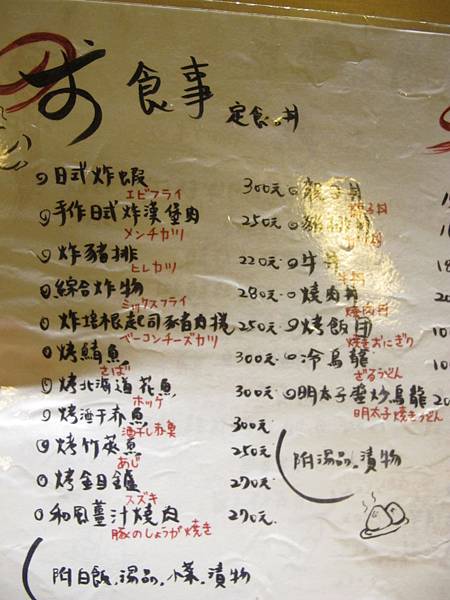 す 食事 定食の丼
日式炸蝦 300元
エビフライ
手作日式炸漢堡肉 250元
メンチカツ
炸豬排 220元
ヒレカツ
綜合炸物 280元
ミックスフライ
炸培根起司豬肉捲 250元
ベーコンチーズカツ
烤鯖魚 300元
さば
烤北海道花魚 300元
ホッケ
烤酒干赤魚 300元
酒干し赤魚
烤竹莢魚 250元
あじ
烤金目鱸 270元
スズキ
和風薑汁燒肉 270元
豚のしょうが焼き
附白飯.湯品.小菜.漬物
親子丼
親子丼
豬排丼
牛丼
牛丼
燒肉丼
焼肉丼
烤飯団
焼きおにぎり
冷烏龍
ざるうどん
明太子醬炒烏龍
明太子焼きうどん
附湯品.漬物